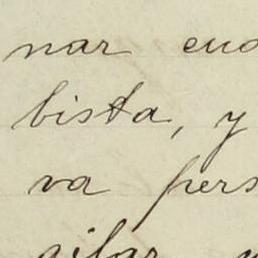 nar cua
bista, y
va pers